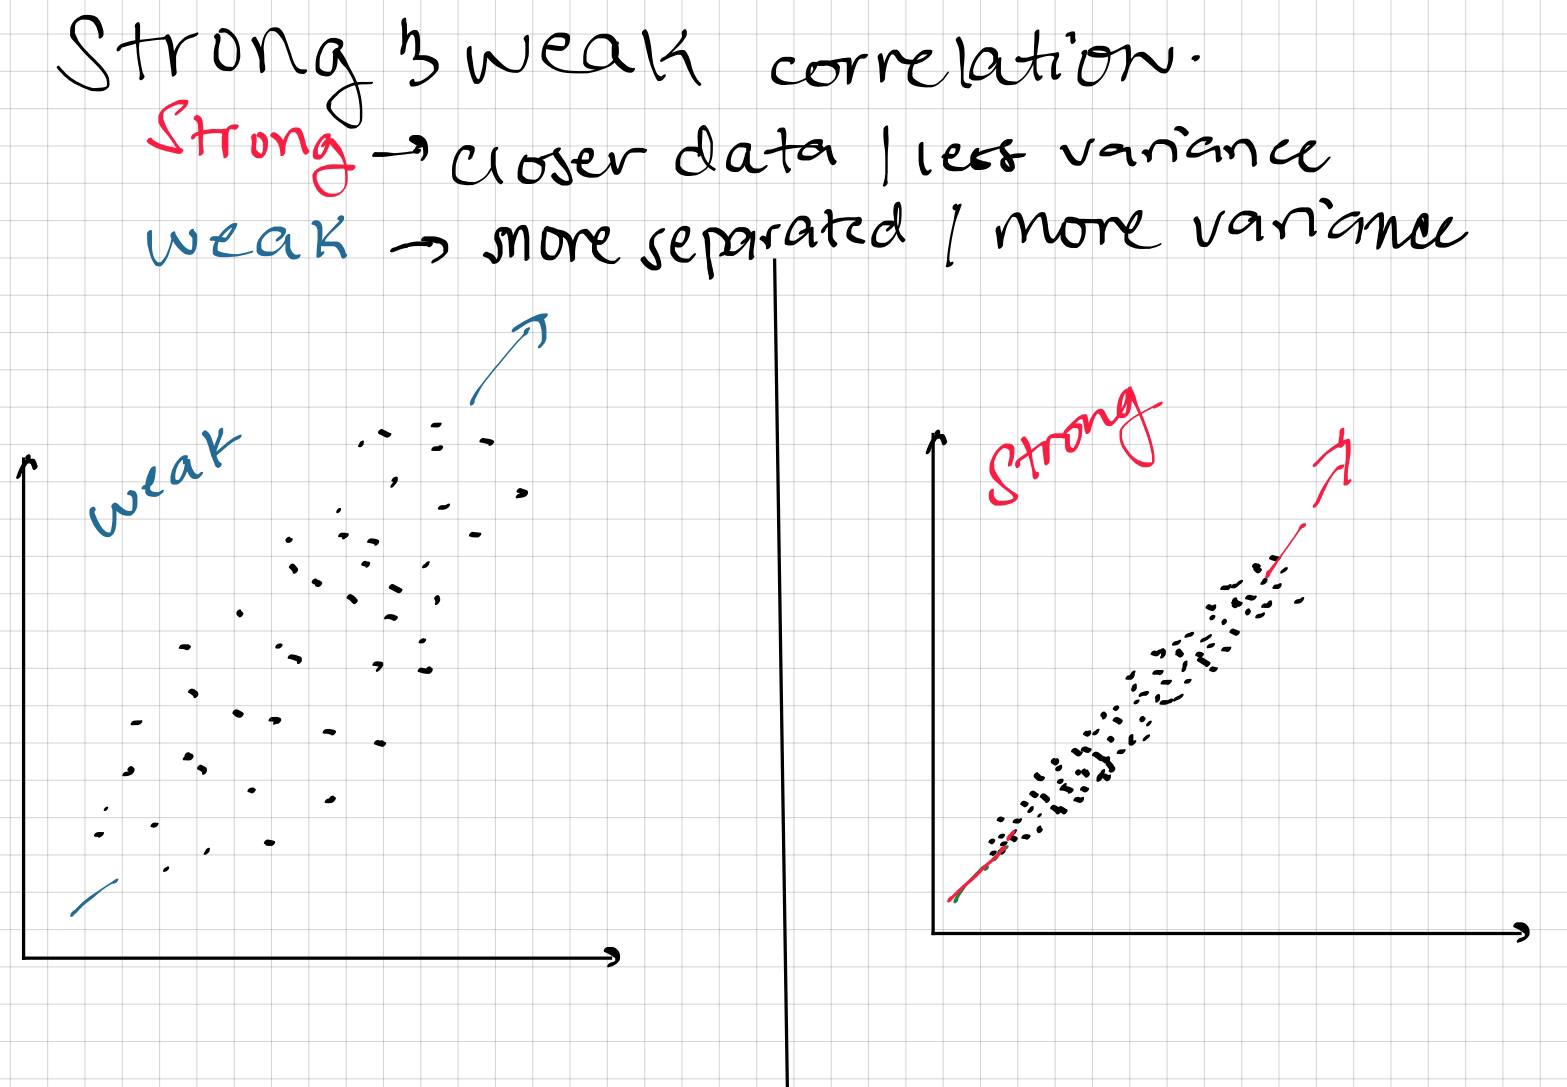 Strong & weak correlation.
Strong → closer data / less variance
weak → more separated / more variance
weak
Strong